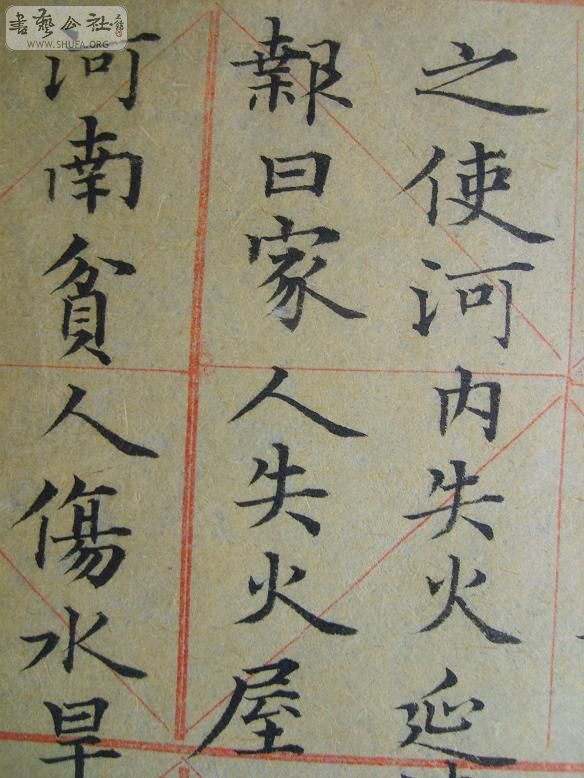 之使河内失火延
報曰家人失火屋
河南貧人傷水旱
書藝公社
WWW.SHUFA.ORG